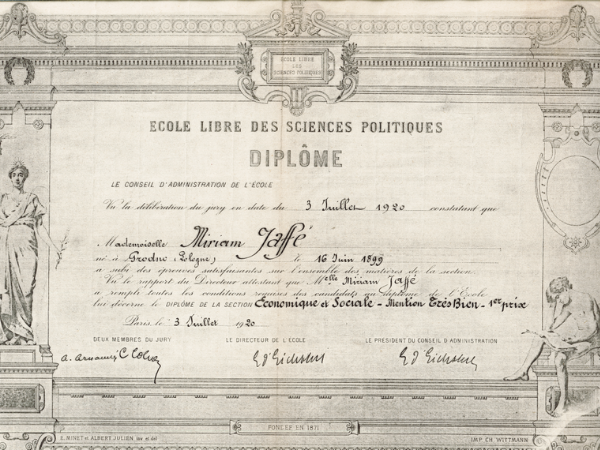 ECOLE LIBRE
DES
SCIENCES POLITIQUES
ECOLE LIBRE DES SCIENCES POLITIQUES
DIPLÔME
LE CONSEIL D'ADMINISTRATION DE L'ÉCOLE
Vu la délibération du jury en date du 3 Juillet 1920 constatant que
Mademoiselle Miriam Jaffé
né à Grodno (Pologne) le 16 Juin 1899
a subi des épreuves satisfaisantes sur l'ensemble des matières de la section
Vu le rapport du Directeur attestant que Melle Miriam Jaffé
a rempli toutes les conditions requises des candidats au diplôme de l'École
lui décerne le DIPLÔME DE LA SECTION Economique et Sociale - Mention Très Bien - 1er prix
Paris le 3 Juillet 1920
DEUX MEMBRES DU JURY LE DIRECTEUR DE L'ECOLE LE PRÉSIDENT DU CONSEIL D'ADMINISTRATION
E. d'Eichthal E. d'Eichthal
FONDÉE EN 1871
E. MINET et ALBERT JULIEN IMP. CH. WITTMANN